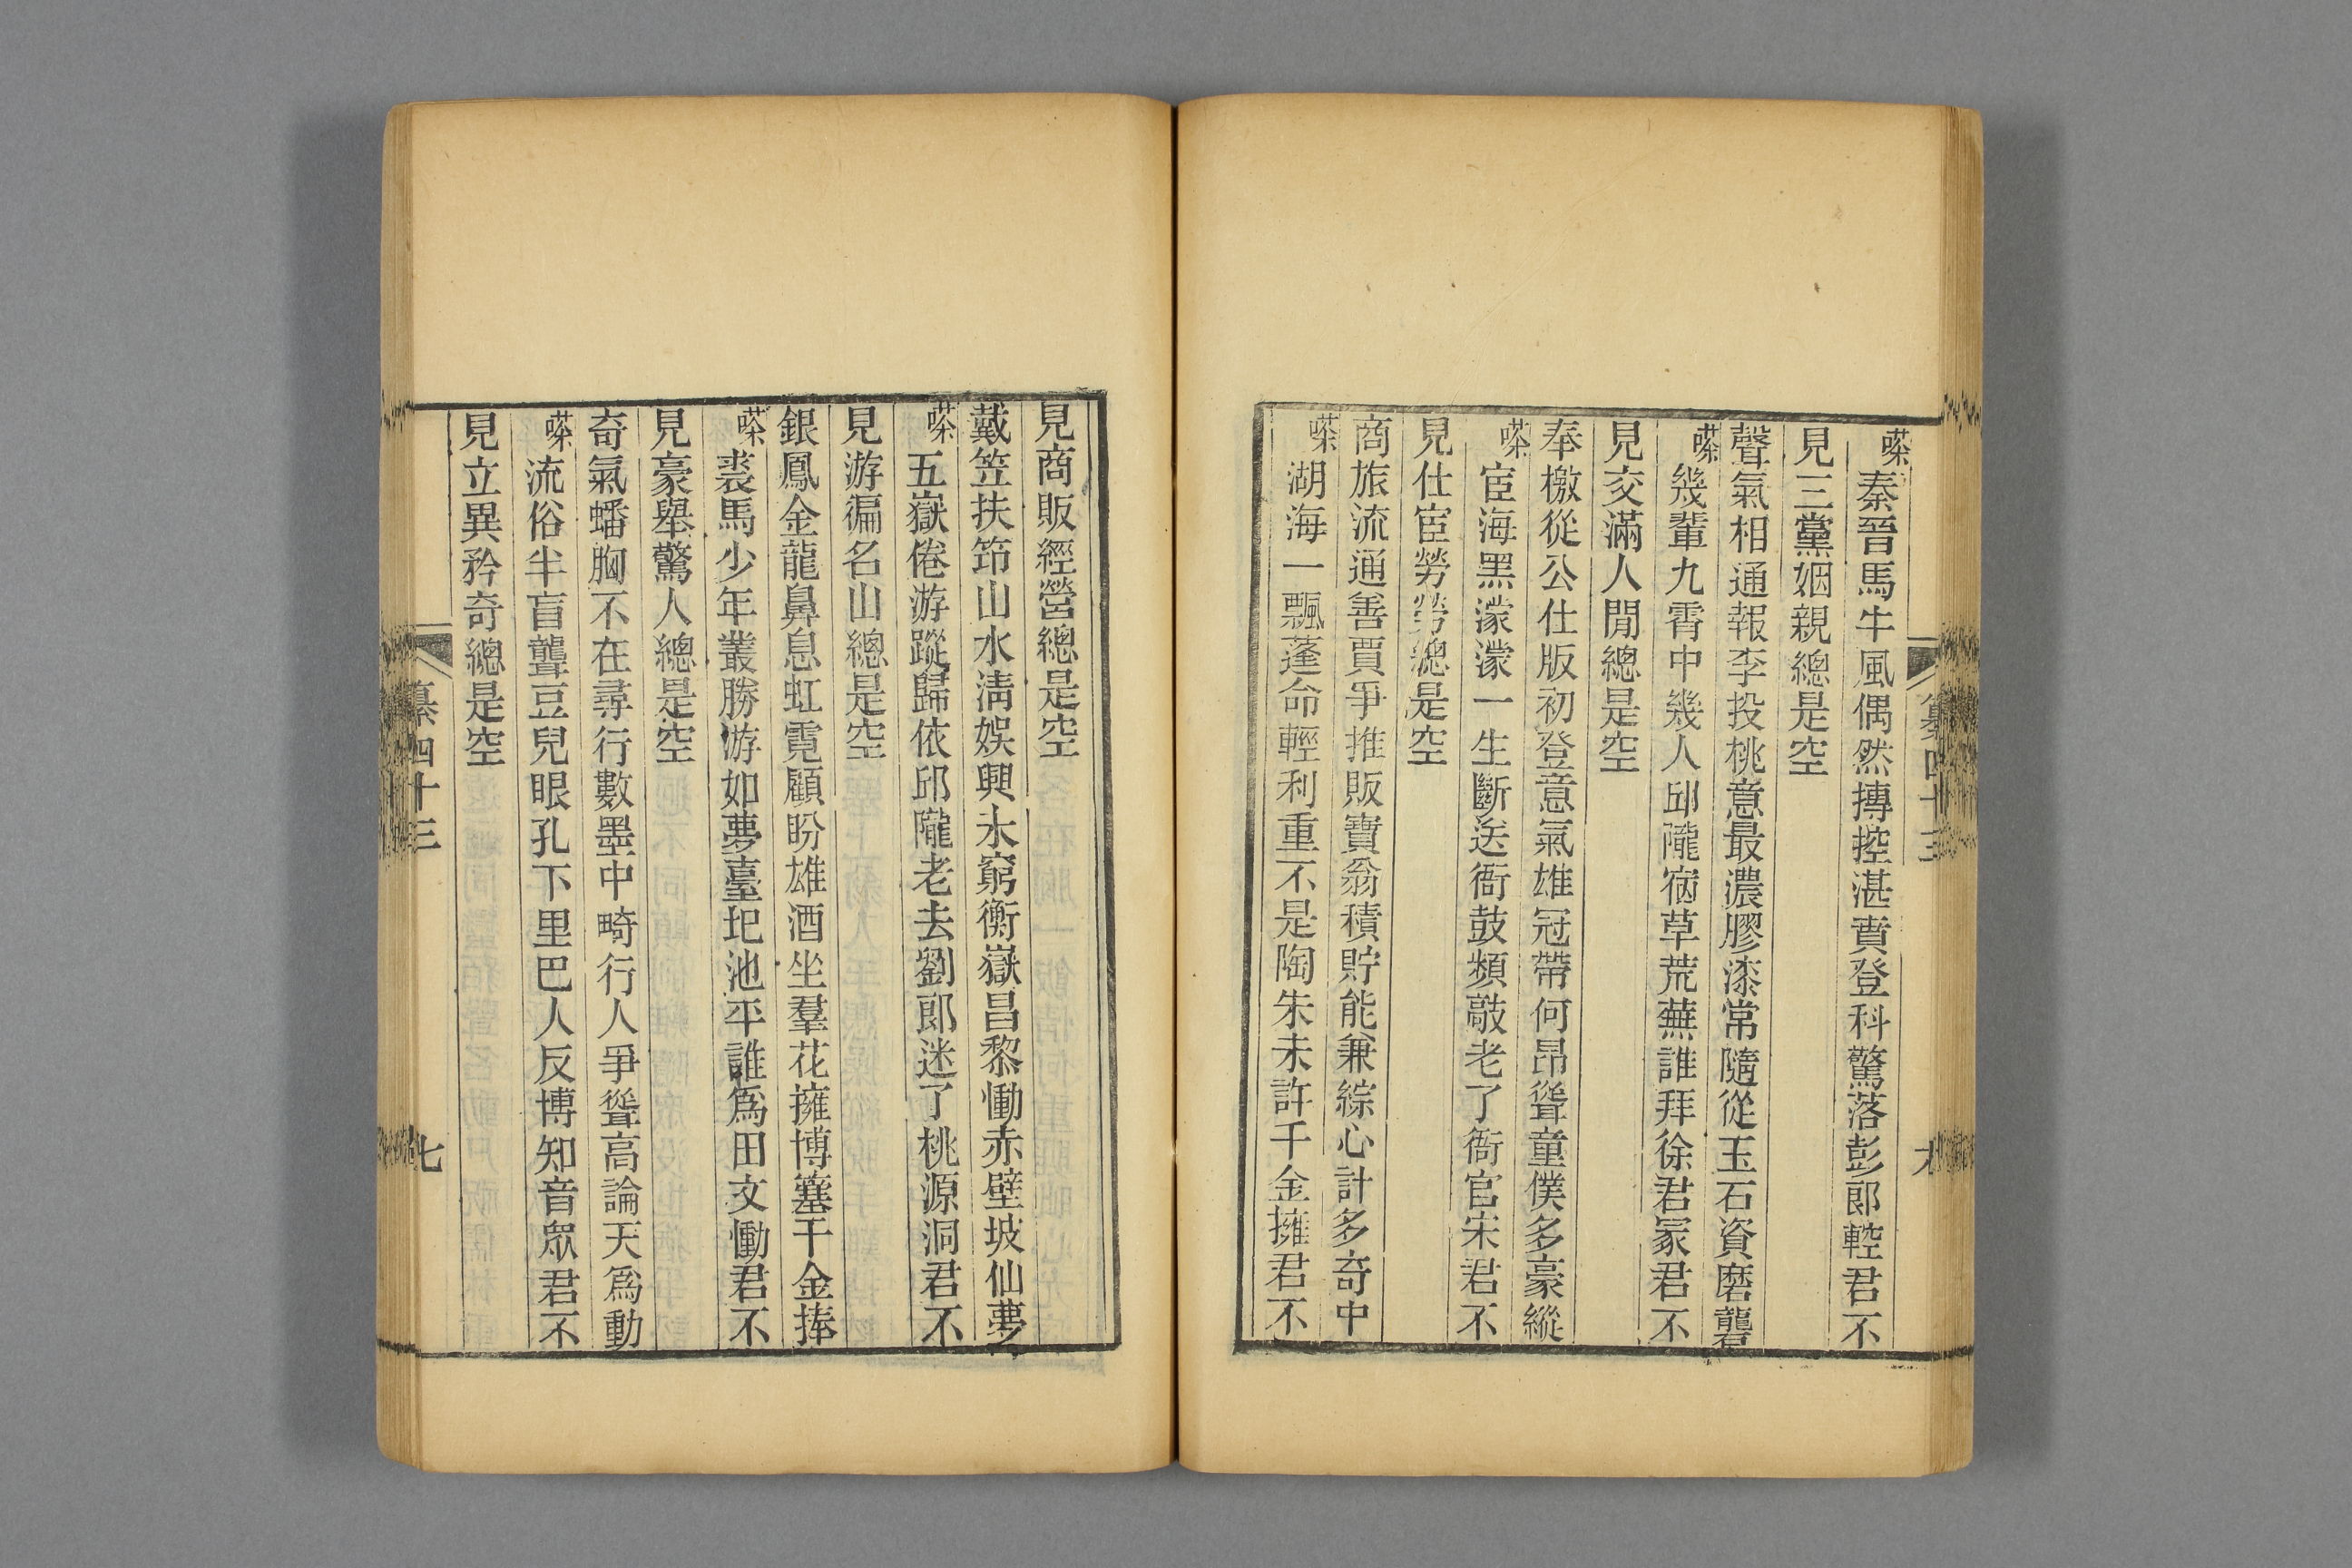 嗏秦晉馬牛風偶然摶控湛賁登科驚落彭郞輕君不
見三黨姻親總是空
聲氣相通報李投桃意最濃膠漆常隨從玉石資磨礱
嗏幾輩九霄中幾人邱隴宿草荒蕪誰拜徐君冢君不
見交滿人閒總是空
奉檄從公仕版初登意氣雄冠帶何昂聳童僕多豪縱
嗏宦海黑濛濛一生斷送衙鼓頻敲老了衙官宋君不
見仕宦勞勞總是空
商旅流通善賈爭推販寶翁積貯能兼綜心計多奇中
嗏湖海一飄蓬命輕利重不是陶朱未許千金擁君不
纂四十三
六
見商販經營總是空
戴笠扶筇山水淸娛興未窮衡嶽昌黎慟赤壁坡仙夢
嗏五嶽倦游蹤歸依邱隴老去劉郞迷了桃源洞君不
見游徧名山總是空
銀鳳金龍鼻息虹霓顧盼雄酒坐羣花擁博簺千金捧
嗏裘馬少年叢勝游如夢臺圯池平誰爲田文慟君不
見豪舉驚人總是空
奇氣蟠胸不在尋行數墨中畸行人爭聳高論天爲動
嗏流俗半盲聾豆兒眼孔下里巴人反博知音眾君不
見立異矜奇總是空
纂四十三
七